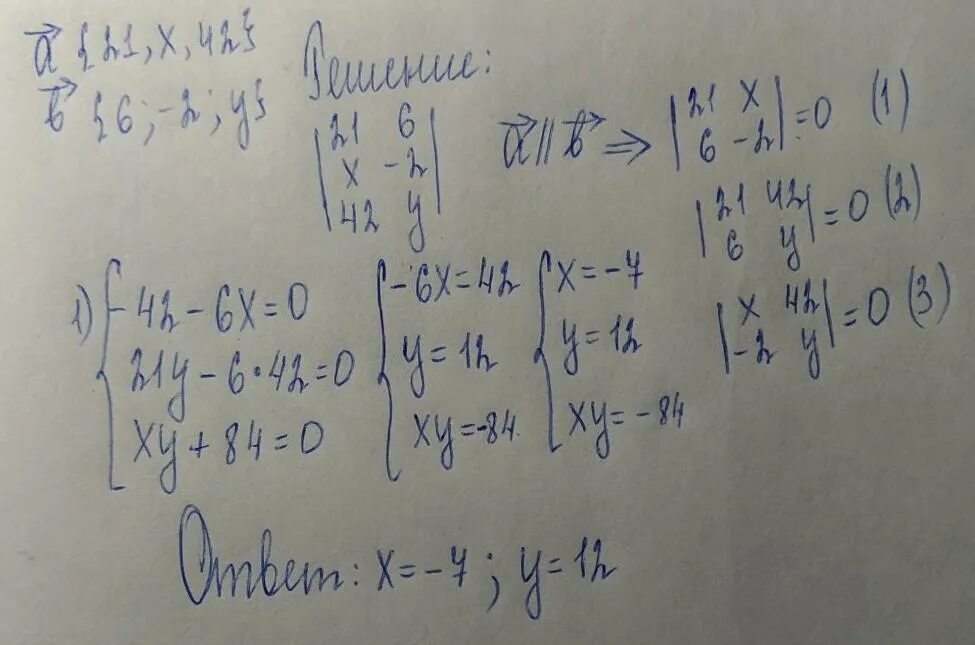 a⃗ {21, x, 42}
b⃗ {6; -2; y}
Решение:
|21 6|
|x -2|
|42 y|
a⃗ || b⃗ ⇒ |21 x| = 0 (1)
|6 -2|
|21 42| = 0 (2)
|6 y|
|x 42| = 0 (3)
|-2 y|
1) { -42 - 6x = 0
21y - 6·42 = 0
xy + 84 = 0
{ -6x = 42
y = 12
xy = -84
{ x = -7
y = 12
xy = -84
Ответ: x = -7; y = 12